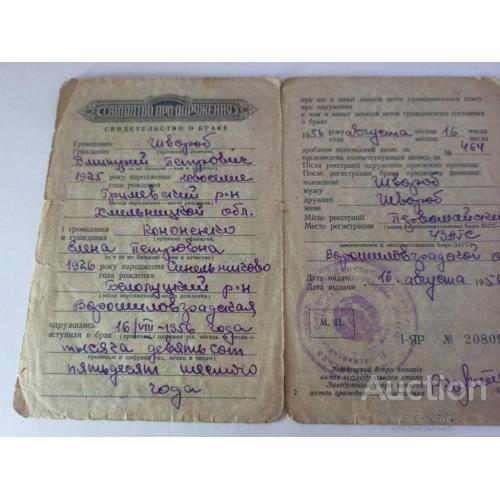 СВІДОЦТВО ПРО ОДРУЖЕННЯ
СВИДЕТЕЛЬСТВО О БРАКЕ
Громадянин Швороб
Гражданин
Дмитрий Петрович
1925 року народження
года рождения
р-н
обл.
і громадянка Кононенко
и гражданка
Елена Петровна
1926 року народження
года рождения
Белолуцкий р-н
Ворошиловградская
одружились 16/VIII-1956 года
вступили в брак
тысяча девятьсот
пятьдесят шестого
года
про що в книзі записів актів громадянського стану
про одруження
о чем в книге записей актов гражданского состояния
о браке
1956 года августа місяця 16 числа
месяца числа
зроблено відповідний запис за №
произведена соответствующая запись за № 464
Після реєстрації одруження присвоєно прізвища:
После регистрации брака присвоены фамилии:
чоловікові Швороб
мужу
дружині Швороб
жене
Місце реєстрації Первомайское
Место регистрации
ЗАГС
Ворошиловградской о
Дата видачі 16 августа 1956
Дата выдачи
М. П.
I-ЯР № 20809
Завідуючий Бюро записів
актів громадянського стану
Заведующий
актов гражданского
2
Auction